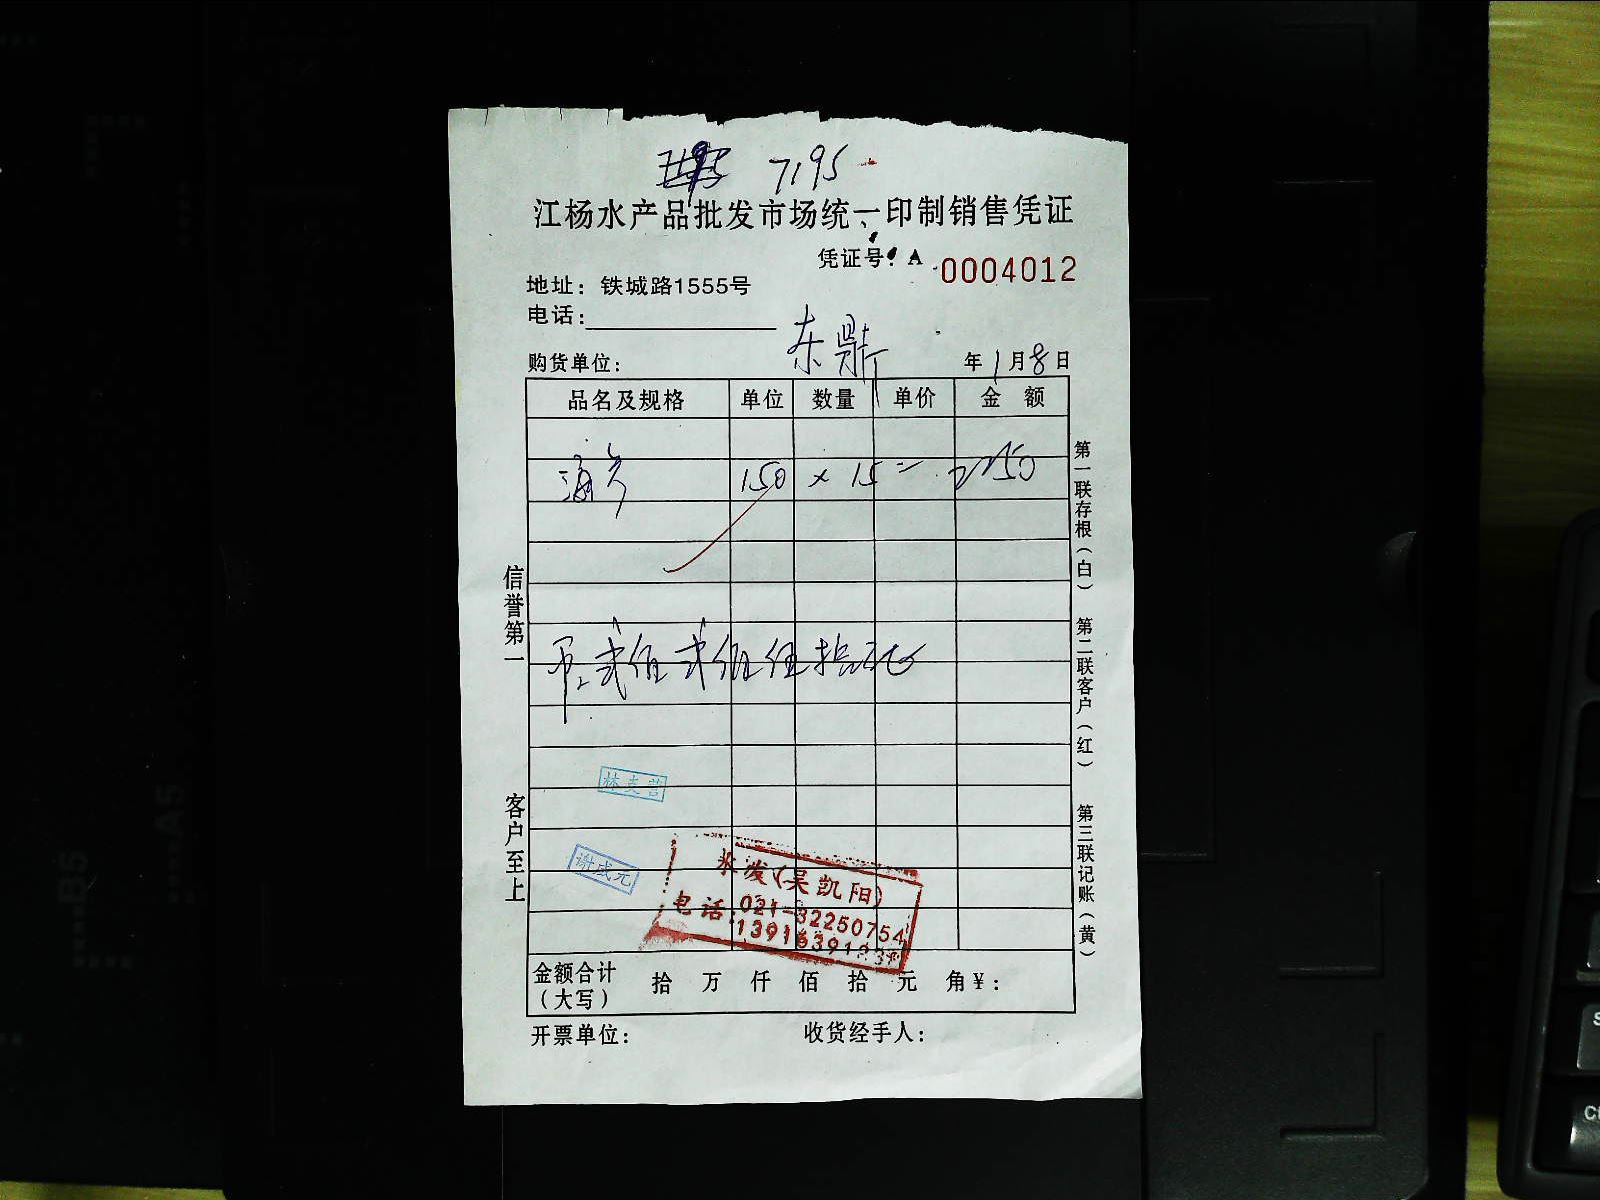 7195
江杨水产品批发市场统一印制销售凭证
凭证号: A 0004012
地址: 铁城路1555号
电话:
东鼎
购货单位: 年1月8日
品名及规格 单位 数量 单价 金 额
150 × 15 = 2250
佰贰佰伍拾元
林支营
谢成元
永发(吴凯阳)
电话:021-32250754
金额合计(大写) 拾 万 仟 佰 拾 元 角¥:
开票单位: 收货经手人:
信誉第一
客户至上
第一联存根(白)
第二联客户(红)
第三联记账(黄)
B5
A5